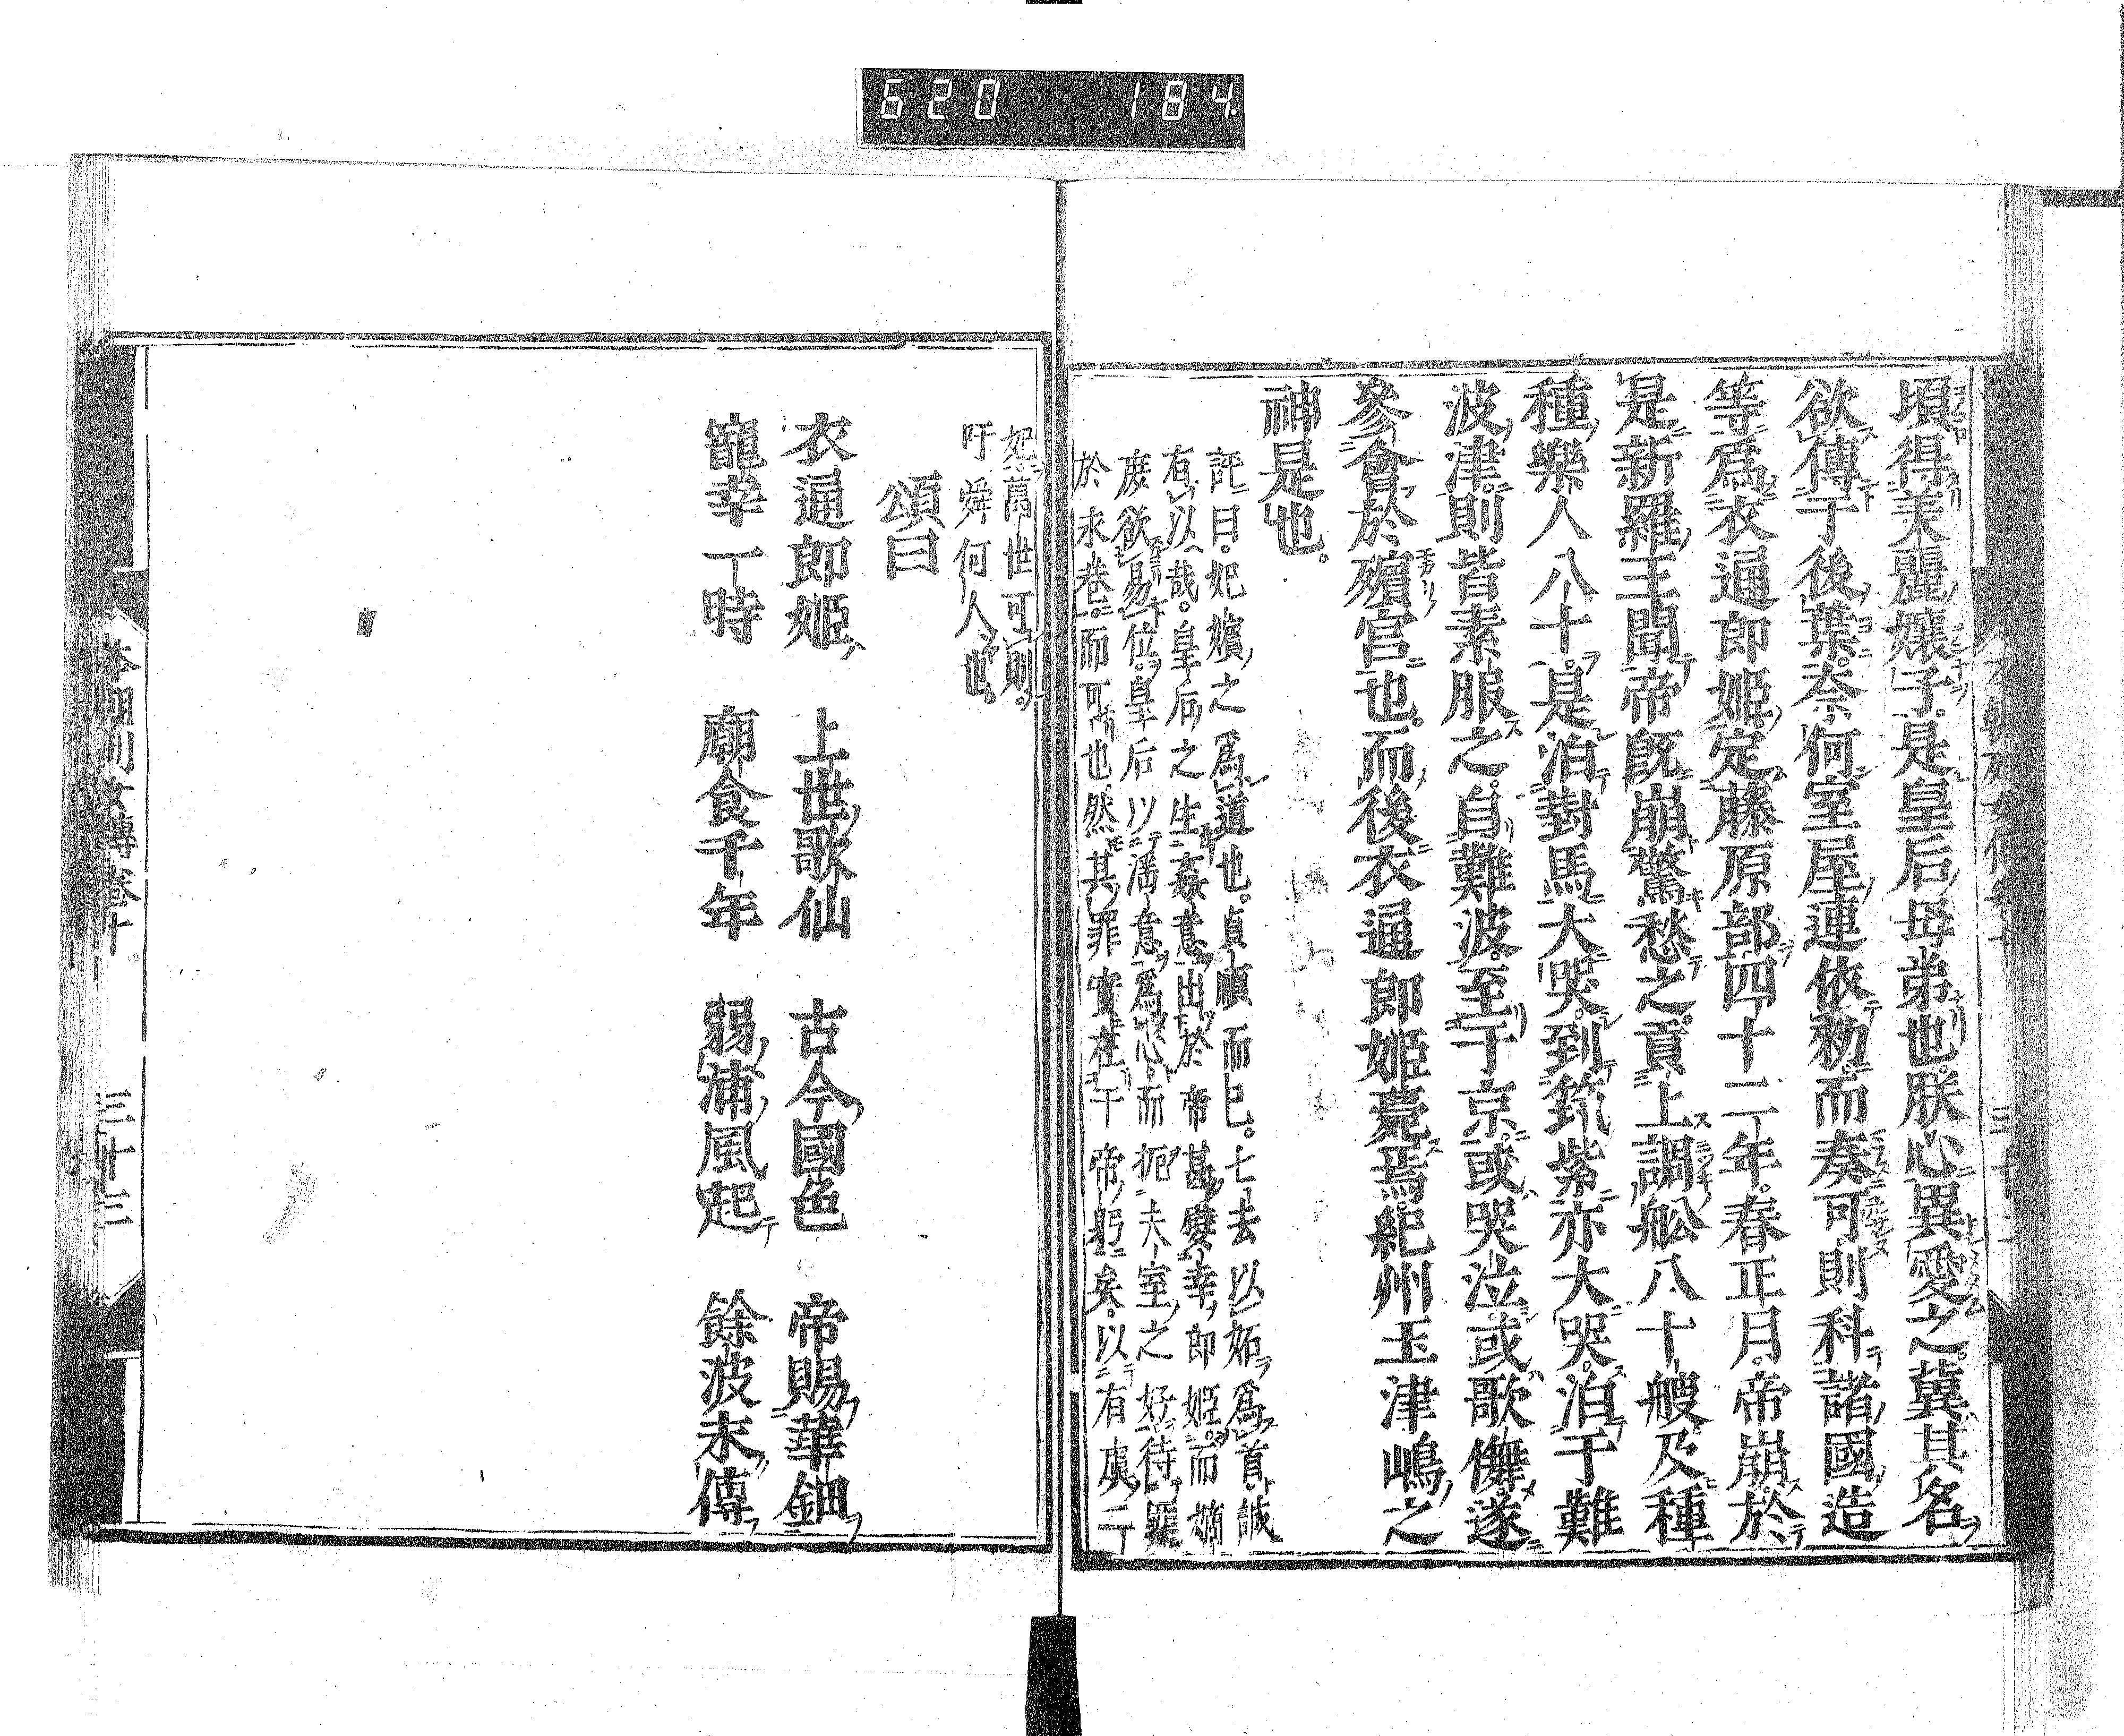 620 184
頃得美麗孃子是皇后母弟也朕心異愛之冀其名
欲傳于後葉奈何室屋連依勅而奏可則科諸國造
等爲衣通郎姫定藤原部四十二年春正月帝崩於
是新羅王聞帝既崩驚愁之貢上調舩八十艘及種
種樂人八十是泊對馬大哭到筑紫亦大哭泊于難
波津則皆素服之自難波至于京或哭泣或歌儛遂
參會於殯宮也而後衣通郎姫薨焉紀州玉津嶋之
神是也
評曰妃嬪之爲道也貞順而已七去以妬爲首誠
有以哉皇后之生姦意出於帝甚嬖幸郎姫而嫡
庶欲易位皇后以滿意爲心而扼夫室之好待罪
於永巷而可也然其罪實在于帝躬矣以有虞二
妃萬世可則
吁舜何人也
頌曰
衣通郎姫 上世歌仙 古今國色 帝賜華鈿
寵幸一時 廟食千年 弱浦風起 餘波永傳
本朝列女傳卷十 三十三